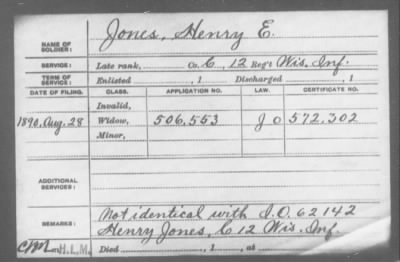 NAME OF SOLDIER: Jones, Henry E.
SERVICE: Late rank, Co. C, 12 Reg't Wis. Inf.
TERM OF SERVICE: Enlisted , 1 Discharged , 1
DATE OF FILING. CLASS. APPLICATION NO. LAW. CERTIFICATE NO.
Invalid,
1890, Aug. 28 Widow, 506,553 J O 572,302
Minor,
ADDITIONAL SERVICES:
REMARKS: Not identical with I.O. 62142
Henry Jones, C 12 Wis. Inf.
CM H.L.M. Died , 1 , at